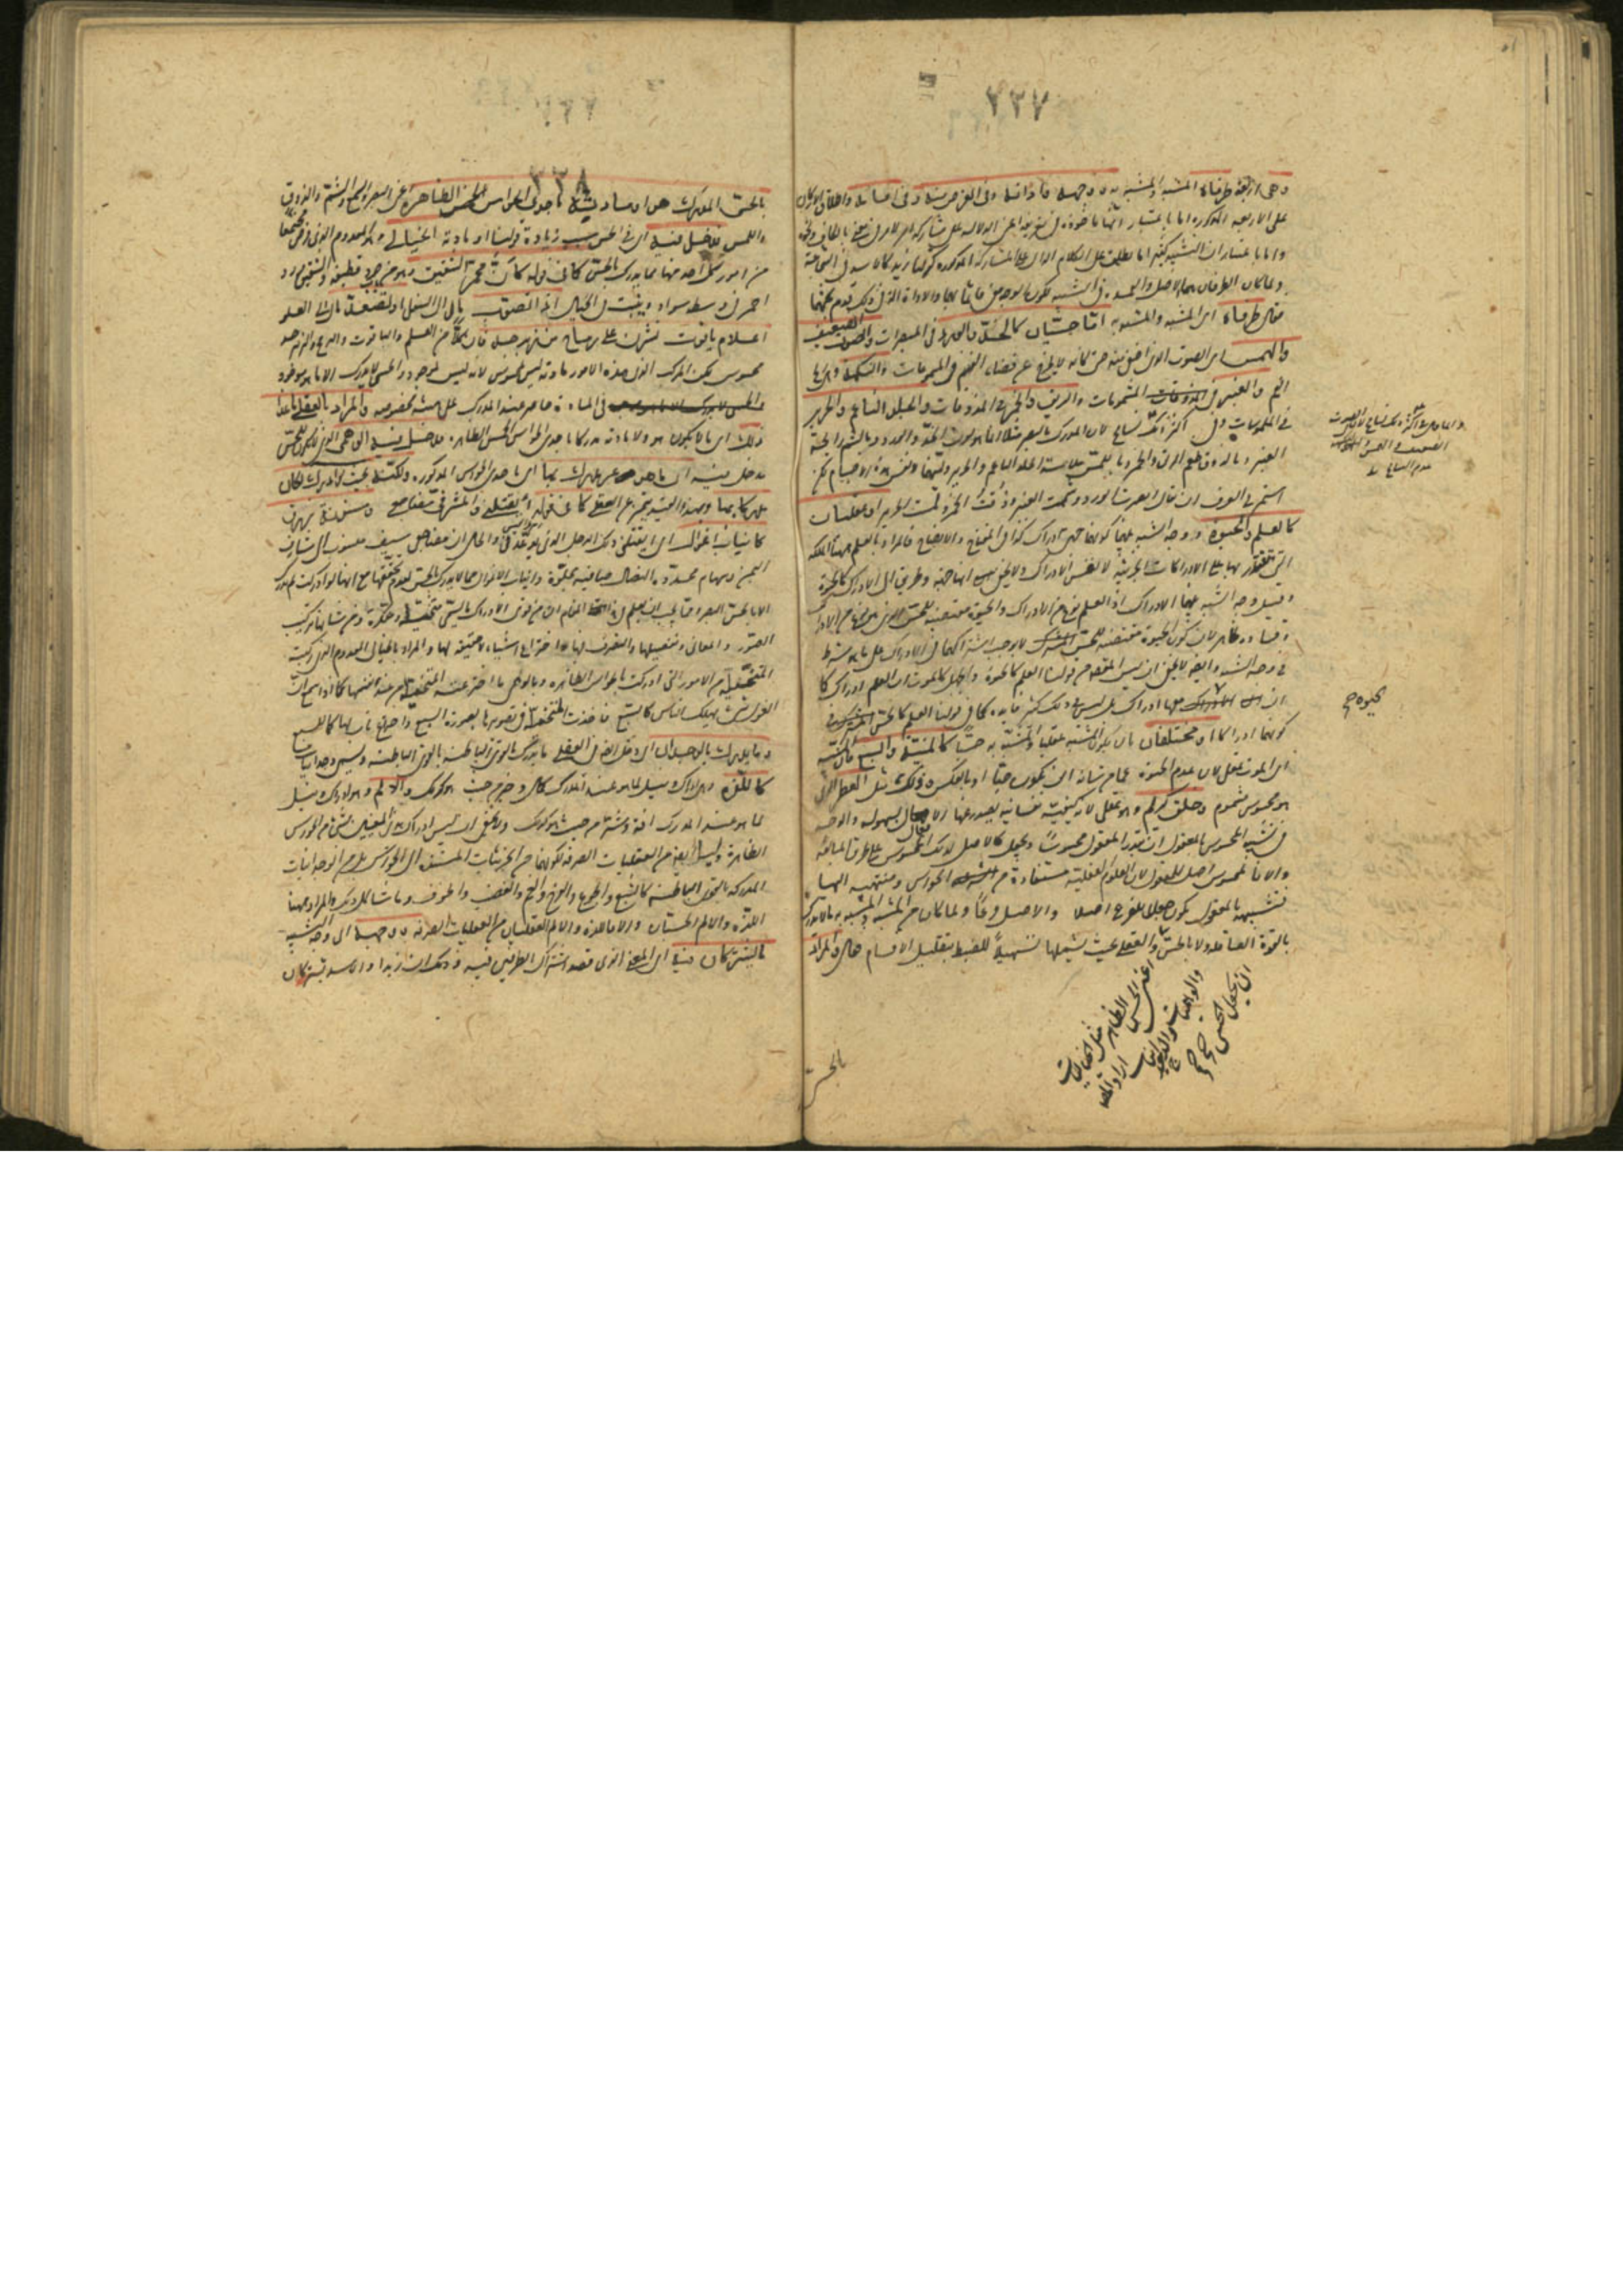 ٢٢٧
وهى اربعة طرفاه المشبه والمشبه به ووجهه واداته وفى الغرض منه وفى اقسامه واطلاق الاركان
على الاربعة المذكورة اما باعتبار انها ماخوذة فى تعريفه اعنى الدلالة على مشاركة امر لامر فى معنى بالكاف ونحوه
واما باعتبار ان التشبيه كثيرا ما يطلق على الكلام الدال على المشاركة المذكورة كقولنا زيد كالاسد فى الشجاعة
ولما كان الطرفان هما الاصل والعمدة فى التشبيه لكون الوجه معنى قائما بهما والاداة آلة فى ذلك قدم بحثهما
فقال طرفاه اى المشبه والمشبه به اما حسيان كالخد والورد فى المبصرات والصوت الضعيف
والهمس اى الصوت الذى اخفى منه حتى كانه لا يخرج عن فضاء الفم فى المسموعات والنكهة وهى ريح
الفم والعنبر فى المشمومات والريق والخمر فى المذوقات والجلد الناعم والحرير
فى الملموسات وفى اكثر ذلك تسامح لان المدرك بالبصر مثلا انما هو لون الخد والورد وبالشم رائحة
العنبر وبالذوق طعم الريق والخمر وباللمس ملاسة الجلد الناعم والحرير ولينهما لا نفس هذه الاجسام لكن
اشتهر فى العرف ان يقال ابصرت الورد وشممت العنبر وذقت الخمر ولمست الحرير او عقليان
كالعلم والحيوة ووجه الشبه بينهما كونهما جهتى ادراك كذا فى المفتاح والايضاح فالمراد بالعلم ههنا الملكة
التى يقتدر بها على الادراكات الجزئية لا نفس الادراك ولا يخفى انها جهة وطريق الى الادراك كالحيوة
وقيل وجه الشبه بينهما الادراك اذ العلم نوع من الادراك والحيوة مقتضية للحس الذى هو نوع من الادراك
وفساده ظاهر لان كون الحيوة مقتضية للحس لا يوجب اشتراكهما فى الادراك على ما هو شرط
فى وجه الشبه وايضا لا يخفى ان ليس المقصود من قولنا العلم كالحيوة والجهل كالموت ان العلم ادراك كما
ان الحيوة معها ادراك بل ليس فى ذلك كثير فائدة كما فى قولنا العلم كالحس فى
كونهما ادراكا او مختلفان بان يكون المشبه عقليا والمشبه به حسيا كالمنية والسبع فان المنية
اى الموت عقلى لان عدم الحيوة عما من شانه ان يكون حيا او بالعكس وذلك مثل العطر الذى
هو محسوس مشموم وخلق كريم وهو عقلى لانه كيفية نفسانية يصدر عنها الافعال بسهولة والوجه
فى تشبيه المحسوس بالمعقول ان يقدر المعقول محسوسا ويجعل كالاصل لذلك المحسوس على طريق المبالغة
والا فالمحسوس اصل للمعقول لان العلوم العقلية مستفادة من الحواس ومنتهية اليها
فتشبيهه بالمعقول يكون جعلا للفرع اصلا والاصل فرعا ولما كان من المشبه والمشبه به ما لا يدرك
بالقوة العاقلة ولا بالحس والعقلى بحيث يشملها تسهيلا للضبط بتقليل الاقسام فقال والمراد
اعنى الحس الظاهر مثل الخياليات
والوهميات والوجدانيات اراد
ان يجعل الحسى
بالحسى
كحيوة صح
٢٢٨
بالحسى المدرك هو او مادته باحدى الحواس الخمس الظاهرة اعنى البصر والسمع والشم والذوق
واللمس فدخل فيه اى فى الحسى بسبب زيادة قولنا او مادته الخيالى وهو المعدوم الذى فرض مجتمعا
من امور كل واحد منها مما يدرك بالحس كما فى قوله كأن محمر الشقيق وهو من باب جرد قطيفة والشقيق ورد
احمر فى وسطه سواد وينبت فى الجبال اذا تصوب مال الى السفل او تصعد مال الى العلو
اعلام ياقوت نشرن على رماح من زبرجد فان كلا من العلم والياقوت والرمح والزبرجد
محسوس لكن المركب الذى هذه الامور مادته ليس بمحسوس لانه ليس بموجود والحس لا يدرك الا ما هو موجود
فى المادة حاضر عند المدرك على هيئة مخصوصة والمراد بالعقلى ما عدا
ذلك اى ما لا يكون هو ولا مادته مدركا باحدى الحواس الخمس الظاهرة فدخل فيه الوهمى الذى لا يكون للحس
مدخل فيه اى ما هو غير مدرك بها اى باحدى الحواس المذكورة ولكنه بحيث لو ادرك لكان
مدركا بها وبهذا القيد يتميز عن العقلى كما فى قوله أيقتلنى والمشرفى مضاجعى ومسنونة زرق
كانياب اغوال اى ايقتلنى ذلك الرجل الذى يوعدنى والحال ان مضاجعى سيف منسوب الى مشارف
اليمن وسهام محددة النصال صافية مجلوة وانياب الاغوال مما لا يدركه الحس لعدم تحققها مع انها لو ادركت لم تدرك
الا بحس البصر ومما يجب ان يعلم فى هذا المقام ان من قوى الادراك ما يسمى متخيلة ومفكرة ومن شانها تركيب
الصور والمعانى وتفصيلها والتصرف فيها واختراع اشياء لا حقيقة لها والمراد بالخيالى المعدوم الذى ركبته
المتخيلة من الامور التى ادركت بالحواس الظاهرة وبالوهمى ما اخترعته المتخيلة من عند نفسها كما اذا سمع ان
الغول شىء يهلك الناس كالسبع فاخذت المتخيلة فى تصويرها بصورة السبع واختراع ناب لها كما للسبع
وما يدرك بالوجدان اى ودخل ايضا فى العقلى ما يدرك بالقوى الباطنة ويسمى وجدانيات
كاللذة وهى ادراك ونيل لما هو عند المدرك كمال وخير من حيث هو كذلك والالم وهو ادراك ونيل
لما هو عند المدرك آفة وشر من حيث هو كذلك ولا يخفى ان ليس ادراك هذين المعنيين بشىء من الحواس
الظاهرة وليسا ايضا من العقليات الصرفة لكونهما من الجزئيات المستندة الى الحواس بل من الوجدانيات
المدركة بالقوى الباطنة كالشبع والجوع والفرح والغم والغضب والخوف وما شاكل ذلك والمراد ههنا
اللذة والالم الحسيان والا فاللذة والالم العقليان من العقليات الصرفة ووجهه اى وجه الشبه
ما يشتركان فيه اى المعنى الذى قصد اشتراك الطرفين فيه وذلك ان زيدا والاسد يشتركان